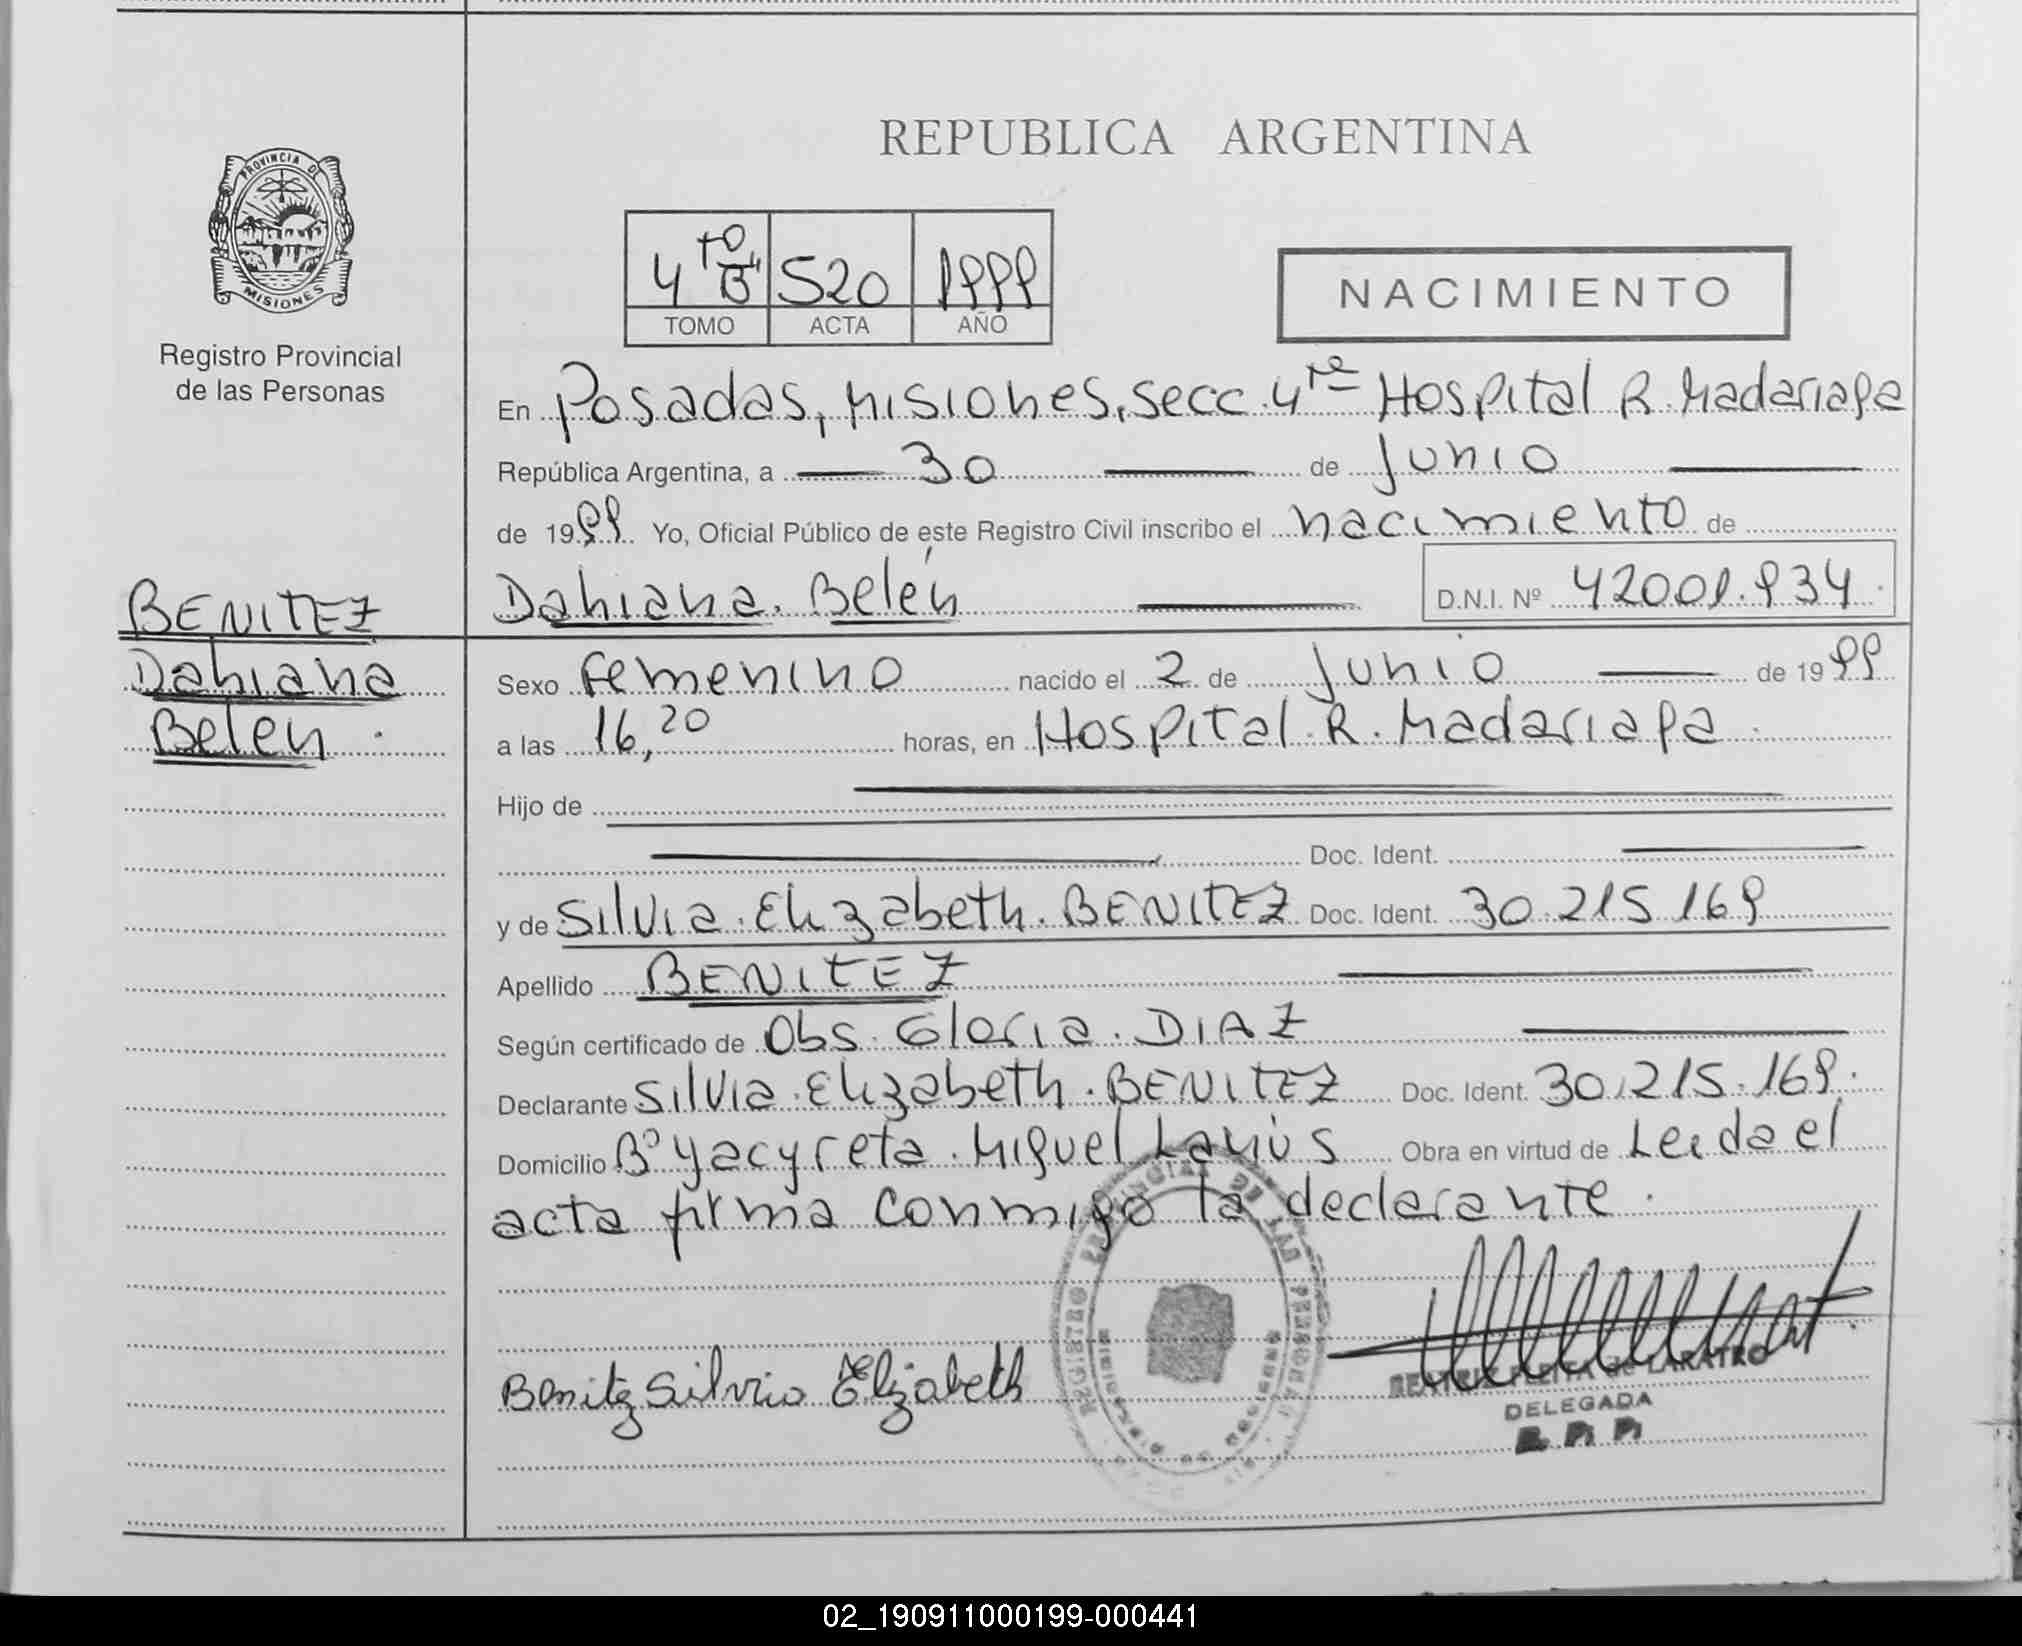 REPUBLICA ARGENTINA
PROVINCIA DE
MISIONES
Registro Provincial
de las Personas
4 to "B" 520 1999
TOMO ACTA AÑO
NACIMIENTO
En Posadas, Misiones, Secc. 4ta Hospital R. Madariaga
República Argentina, a 30 de Junio
de 1999 Yo, Oficial Público de este Registro Civil inscribo el nacimiento de
Dahiana Belén D.N.I. Nº 42001.934.
BENITEZ
Dahiana
Belen.
Sexo Femenino nacido el 2 de Junio de 1999
a las 16,20 horas, en Hospital R. Madariaga.
Hijo de
Doc. Ident.
y de Silvia Elizabeth BENITEZ Doc. Ident. 30.215.169
Apellido BENITEZ
Según certificado de Obs. Gloria DIAZ
Declarante Silvia Elizabeth BENITEZ Doc. Ident. 30.215.169.
Domicilio Bº Yacyreta Miguel Lanús Obra en virtud de Leida el
acta firma conmigo la declarante.
REGISTRO PROVINCIAL DE LAS PERSONAS
Benitez Silvia Elizabeth
DELEGADA
02_190911000199-000441